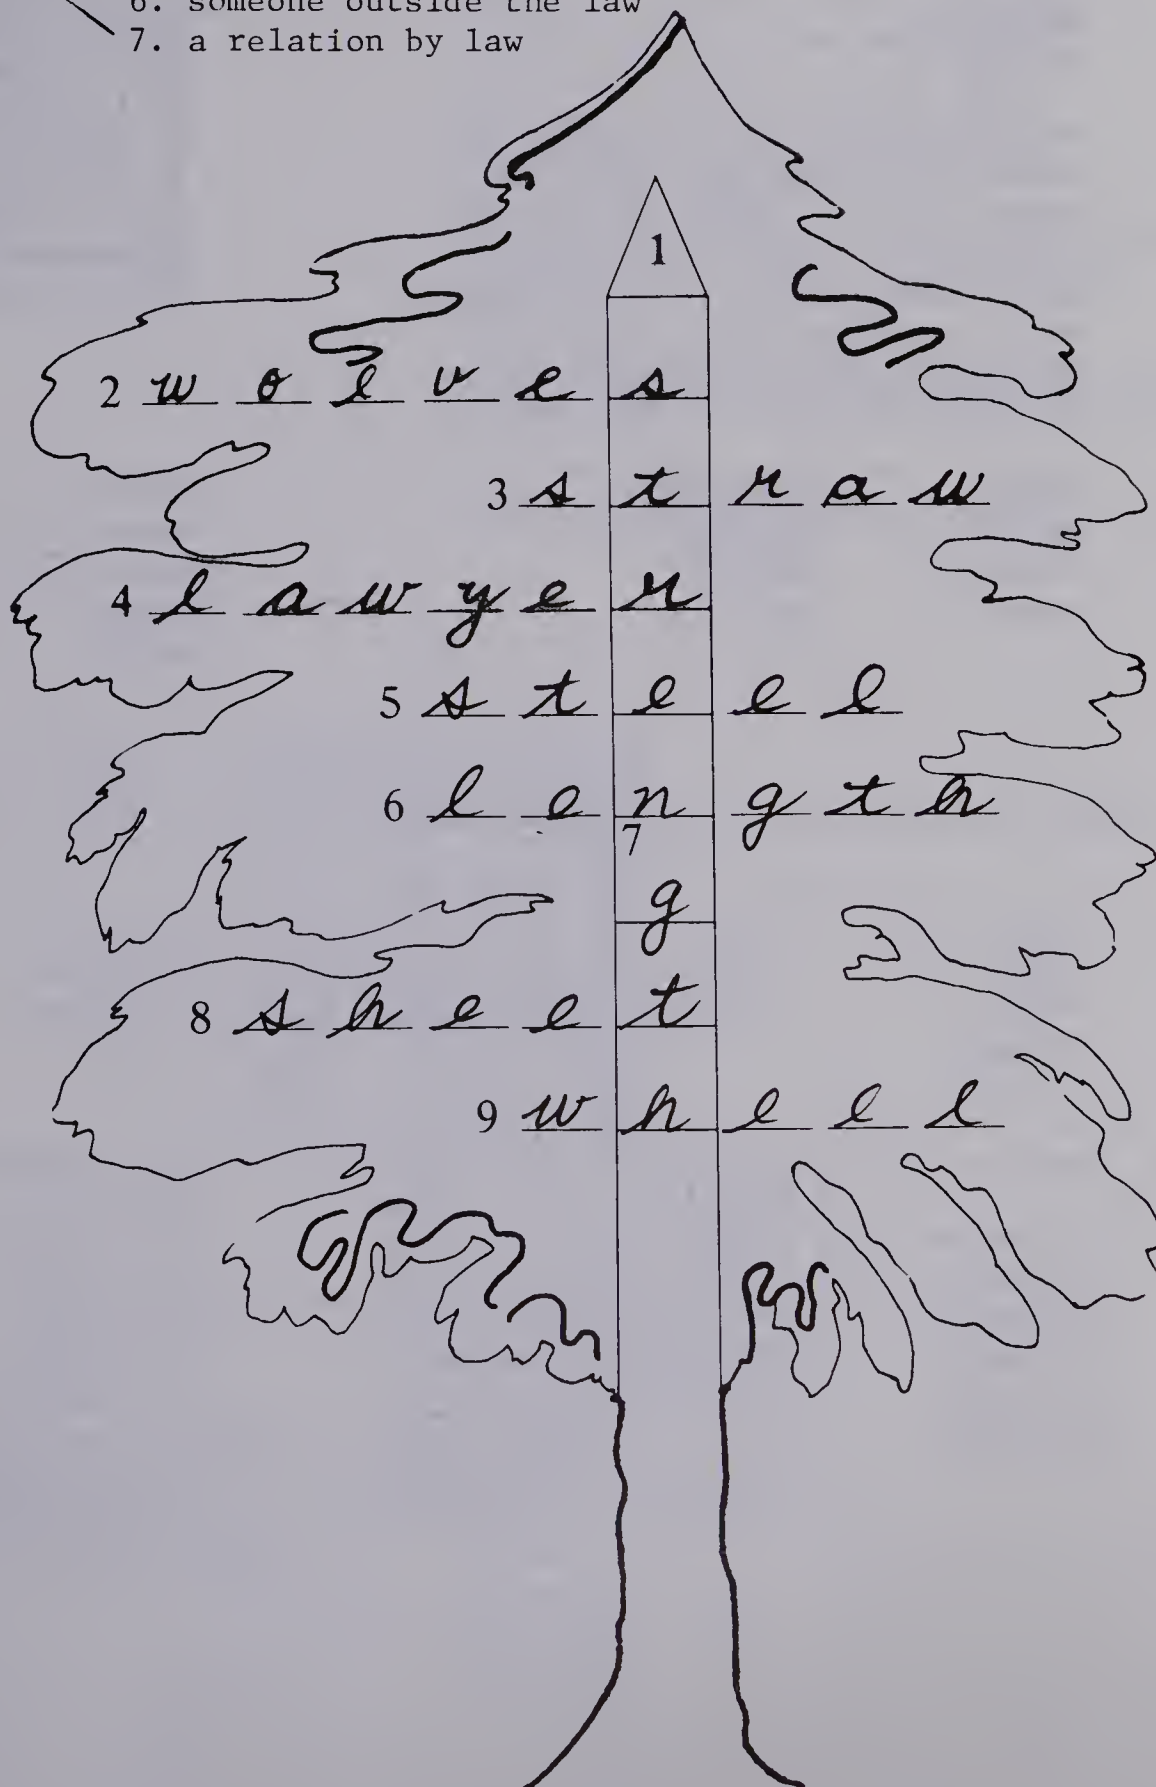 6. someone outside the law
7. a relation by law
1
2 w o l v e s
3 s t r a w
4 l a w y e r
5 s t e e l
6 l e n g t h
7
g
8 s h e e t
9 w h e e l